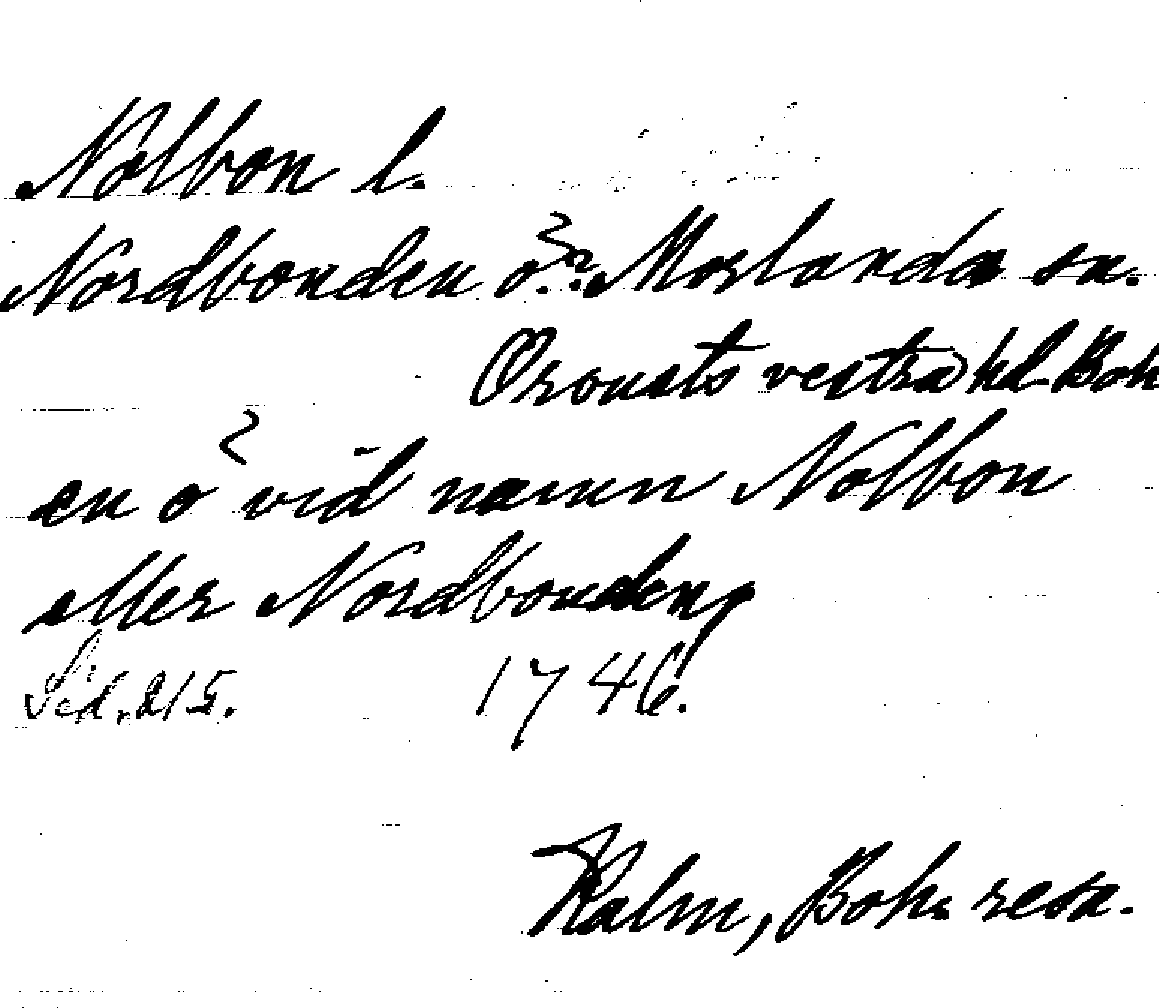 Nolbon l.
Nordbonden ö. ? Morlanda sn.
Orousts vestra hd Boh
en ö vid namn Nolbon
eller Nordbonden,
Sid. 215. 1746.
Kalm, Boh. resa.